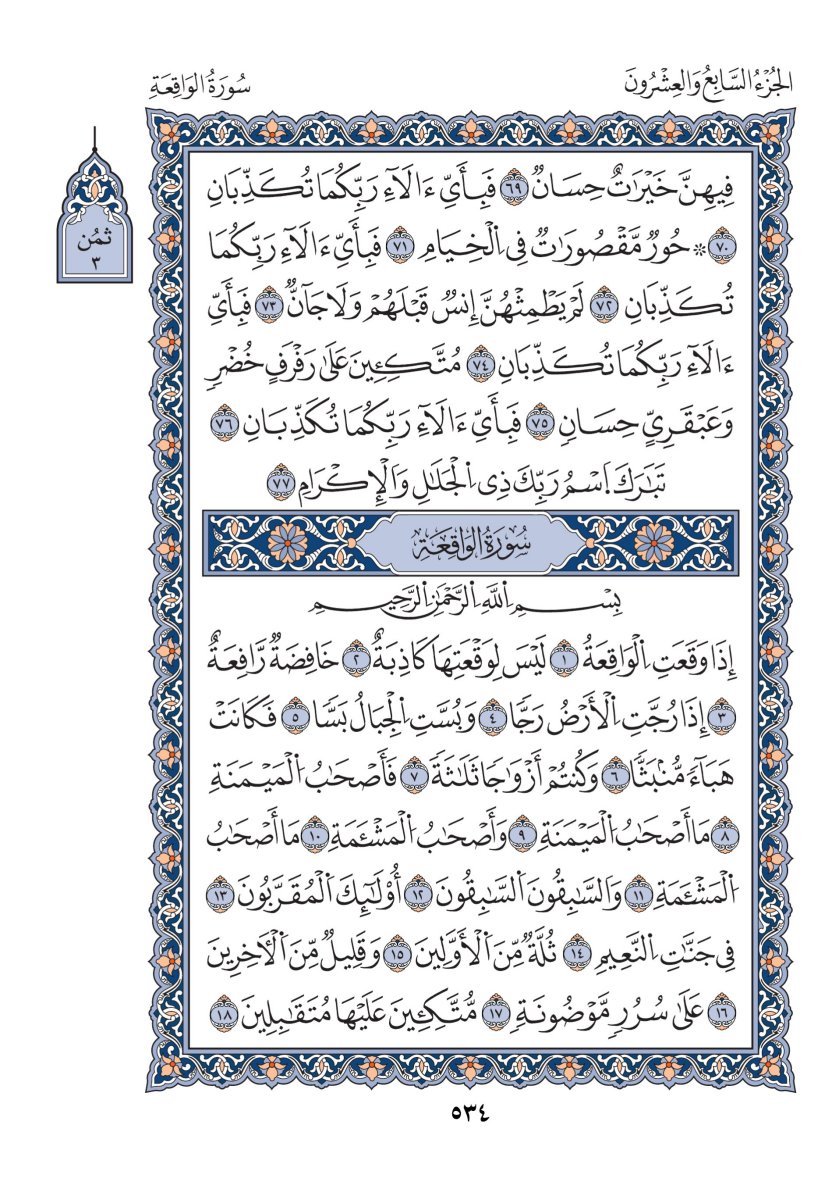 الجُزْءُ السَّابِعُ وَالعِشْرُونَ
سُورَةُ الوَاقِعَةِ
ثمُن
٣
فِيهِنَّ خَيْرَٰتٌ حِسَانٌ ٦٩ فَبِأَيِّ ءَالَآءِ رَبِّكُمَا تُكَذِّبَانِ
٧٠ ۞ حُورٌ مَّقْصُورَٰتٌ فِي اِ۬لْخِيَامِ ٧١ فَبِأَيِّ ءَالَآءِ رَبِّكُمَا
تُكَذِّبَانِ ٧٢ لَمْ يَطْمِثْهُنَّ إِنسٌ قَبْلَهُمْ وَلَا جَآنٌّ ٧٣ فَبِأَيِّ
ءَالَآءِ رَبِّكُمَا تُكَذِّبَانِ ٧٤ مُتَّكِـِٕينَ عَلَىٰ رَفْرَفٍ خُضْرٍ
وَعَبْقَرِيٍّ حِسَانٍ ٧٥ فَبِأَيِّ ءَالَآءِ رَبِّكُمَا تُكَذِّبَانِ ٧٦
تَبَٰرَكَ اَ۪سْمُ رَبِّكَ ذِي اِ۬لْجَلَٰلِ وَالْإِكْرَامِ ٧٧
سُورَةُ الوَاقِعَةِ
بِسْمِ اِ۬للَّهِ اِ۬لرَّحْمَٰنِ اِ۬لرَّحِيمِ
إِذَا وَقَعَتِ اِ۬لْوَاقِعَةُ ١ لَيْسَ لِوَقْعَتِهَا كَاذِبَةٌ ٢ خَافِضَةٌ رَّافِعَةٌ
٣ إِذَا رُجَّتِ اِ۬لْأَرْضُ رَجّٗا ٤ وَبُسَّتِ اِ۬لْجِبَالُ بَسّٗا ٥ فَكَانَتْ
هَبَآءٗ مُّنۢبَثّٗا ٦ وَكُنتُمْ أَزْوَٰجٗا ثَلَٰثَةٗ ٧ فَأَصْحَٰبُ اُ۬لْمَيْمَنَةِ
٨ مَا أَصْحَٰبُ اُ۬لْمَيْمَنَةِ ٩ وَأَصْحَٰبُ اُ۬لْمَشْـَٔمَةِ ١٠ مَا أَصْحَٰبُ
اُ۬لْمَشْـَٔمَةِ ١١ وَالسَّٰبِقُونَ اَ۬لسَّٰبِقُونَ ١٢ أُوْلَٰٓئِكَ اَ۬لْمُقَرَّبُونَ ١٣
فِي جَنَّٰتِ اِ۬لنَّعِيمِ ١٤ ثُلَّةٌ مِّنَ اَ۬لْأَوَّلِينَ ١٥ وَقَلِيلٌ مِّنَ اَ۬لْأٓخِرِينَ
١٦ عَلَىٰ سُرُرٍ مَّوْضُونَةٍ ١٧ مُّتَّكِـِٕينَ عَلَيْهَا مُتَقَٰبِلِينَ ١٨
٥٣٤